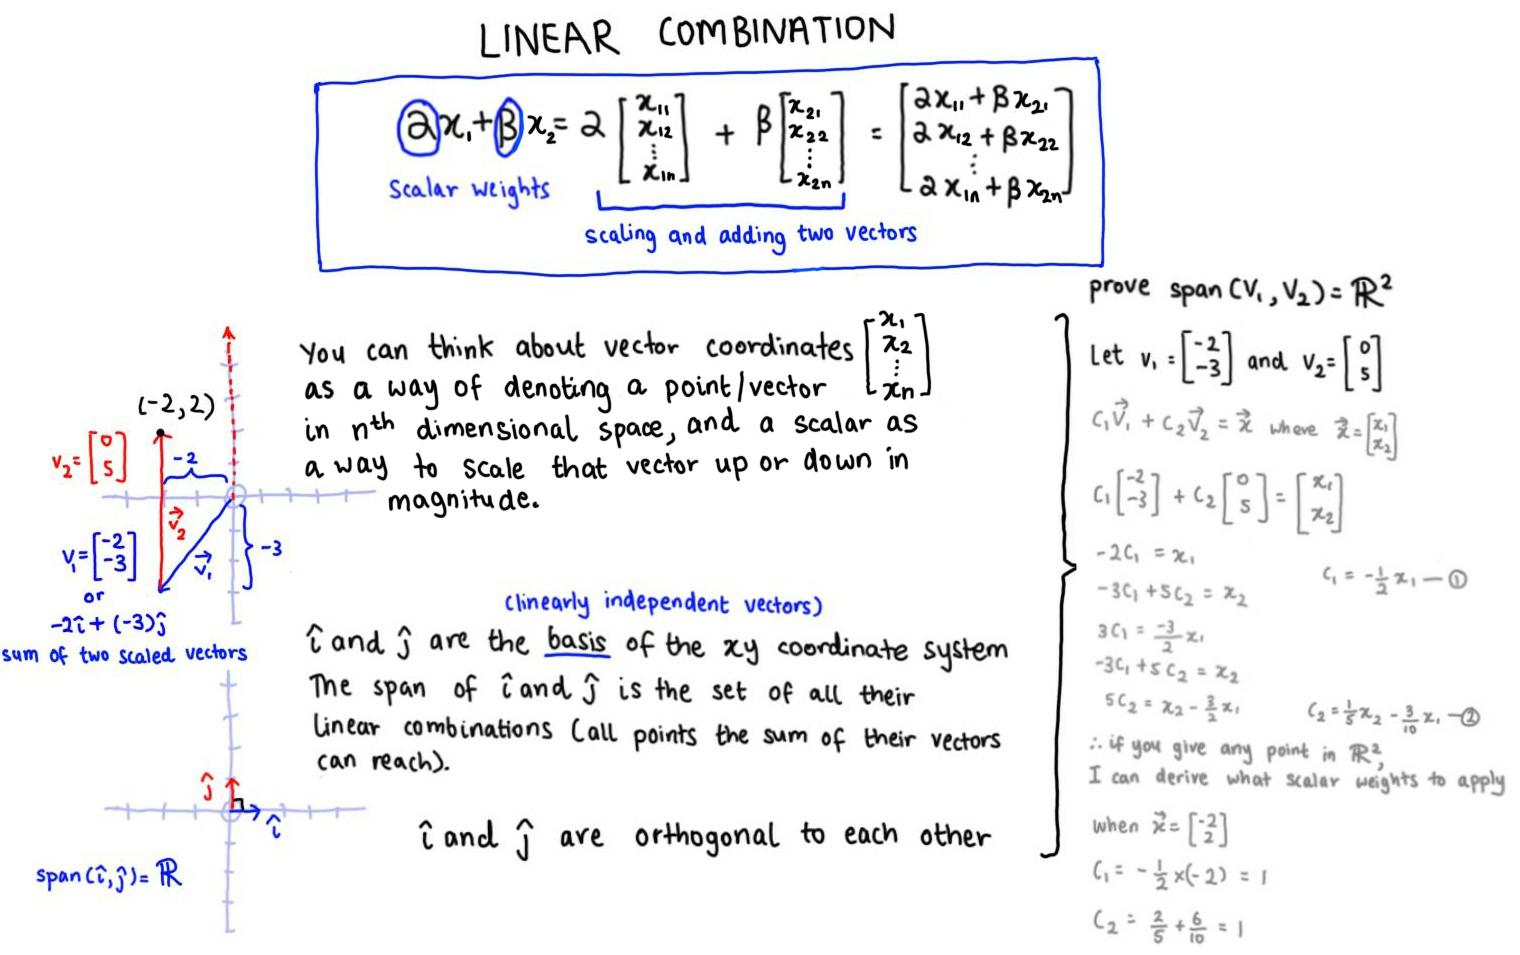 LINEAR COMBINATION
2x₁ + βx₂ = 2 [x₁₁ x₁₂ ⋮ x₁ₙ] + β [x₂₁ x₂₂ ⋮ x₂ₙ] = [2x₁₁ + βx₂₁ 2x₁₂ + βx₂₂ ⋮ 2x₁ₙ + βx₂ₙ]
Scalar weights
scaling and adding two vectors
You can think about vector coordinates [x₁ x₂ ⋮ xₙ]
as a way of denoting a point/vector
in nᵗʰ dimensional space, and a scalar as
a way to scale that vector up or down in
magnitude.
(-2,2)
v₂ = [0 5]
-2
v⃗₂
v₁ = [-2 -3]
v⃗₁
-3
or
-2î + (-3)ĵ
sum of two scaled vectors
(linearly independent vectors)
î and ĵ are the basis of the xy coordinate system
The span of î and ĵ is the set of all their
linear combinations (all points the sum of their vectors
can reach).
î and ĵ are orthogonal to each other
ĵ
î
span(î,ĵ) = ℝ
prove span(V₁, V₂) = ℝ²
Let v₁ = [-2 -3] and v₂ = [0 5]
C₁V⃗₁ + C₂V⃗₂ = x⃗ where x⃗ = [x₁ x₂]
C₁ [-2 -3] + C₂ [0 5] = [x₁ x₂]
-2C₁ = x₁
C₁ = -½ x₁ — ①
-3C₁ + 5C₂ = x₂
3C₁ = -3/2 x₁
-3C₁ + 5C₂ = x₂
5C₂ = x₂ - 3/2 x₁
C₂ = 1/5 x₂ - 3/10 x₁ — ②
∴ if you give any point in ℝ²,
I can derive what scalar weights to apply
when x⃗ = [-2 2]
C₁ = -½ × (-2) = 1
C₂ = 2/5 + 6/10 = 1